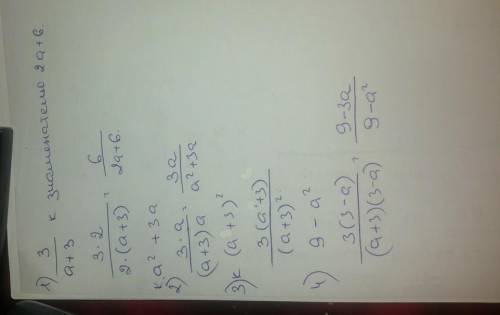 1) 3/(a+3) к знаменателю 2a+6.
3·2/(2·(a+3)) = 6/(2a+6).
к a² + 3a
2) 3·a/((a+3)a) = 3a/(a²+3a)
3) к (a+3)²
3(a+3)/(a+3)²
4) 9 - a²
3(3-a)/((a+3)(3-a)) = (9-3a)/(9-a²)